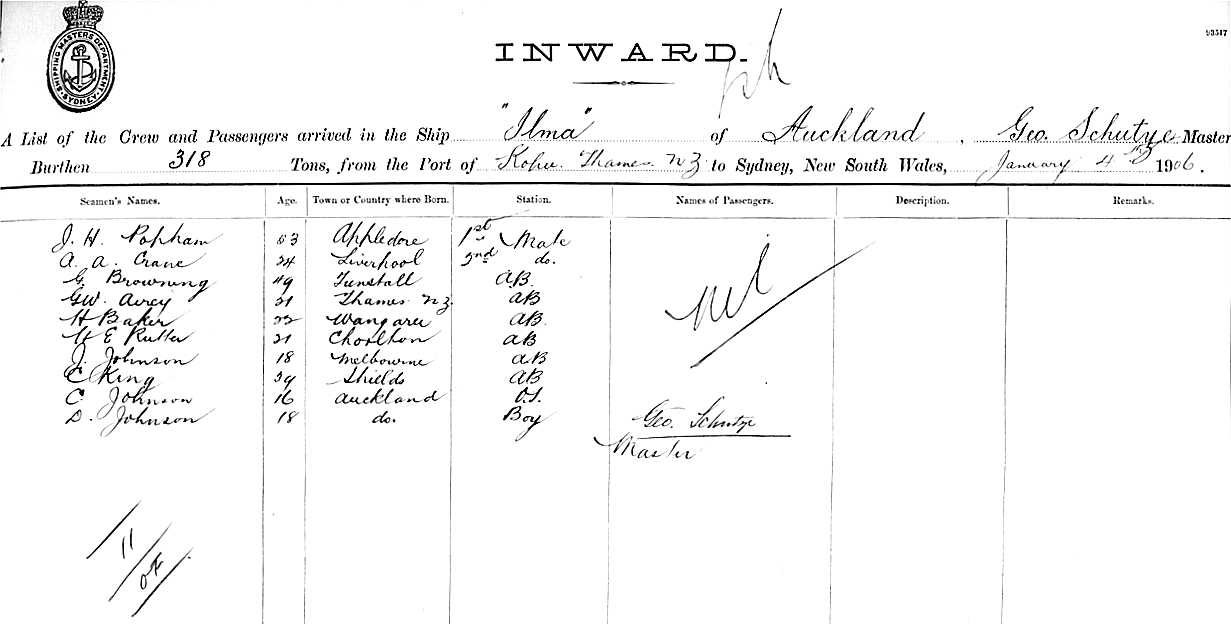 SHIPPING MASTERS DEPARTMENT. SYDNEY
93517
INWARD.
A List of the Crew and Passengers arrived in the Ship "Ilma" of Auckland, Geo. Schutye Master
Burthen 318 Tons, from the Port of Kopu Thames NZ to Sydney, New South Wales, January 4th 1906.
Seamen's Names. Age. Town or Country where Born. Station. Names of Passengers. Description. Remarks.
J. H. Popham 53 Appledore 1st Mate
A. A. Crane 24 Liverpool 2nd do.
G. Browning 49 Tunstall AB.
GW. Airey 21 Thames NZ. AB
H Baker 22 Wangarei AB.
E Rutter 21 Chorlton AB
J. Johnson 18 Melbourne AB
C King 39 Shields AB
C. Johnson 16 Auckland O.S.
D. Johnson 18 do. Boy
Nil
Geo. Schutye
Master
11